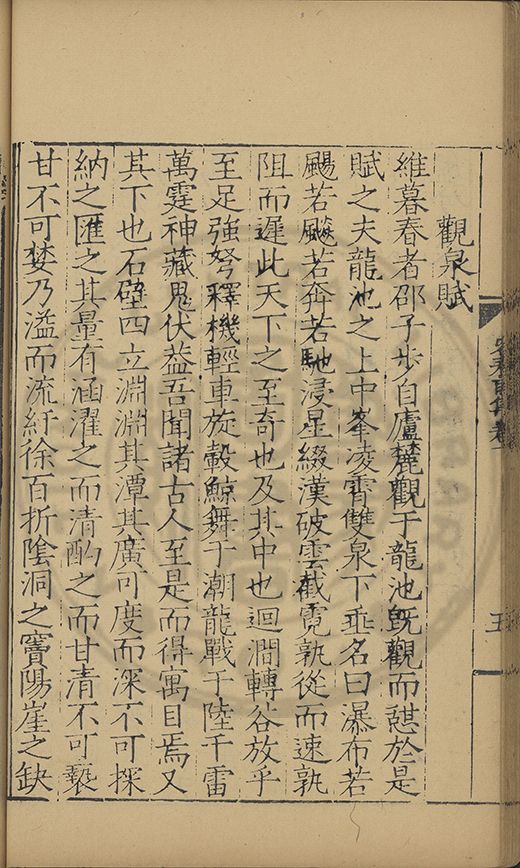 觀泉賦
維暮春者邵子步自廬麓觀于龍池旣觀而諶於是
賦之夫龍池之上中峯凌霄雙泉下垂名曰瀑布若
颺若飈若奔若馳浸星綴漢破雲截霓孰從而速孰
阻而遲此天下之至奇也及其中也迴澗轉谷放乎
至足強弩釋機輕車旋轂鯨舞于潮龍戰于陸千雷
萬霆神藏鬼伏葢吾聞諸古人至是而得寓目焉又
其下也石壁四立淵淵其潭其廣可度而深不可探
納之匯之其量有涵濯之而清酌之而甘清不可褻
甘不可婪乃溢而流紆徐百折陰洞之竇陽崖之缺
五